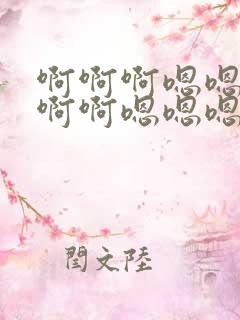 啊啊啊嗯嗯
啊啊嗯嗯嗯
閆文陸